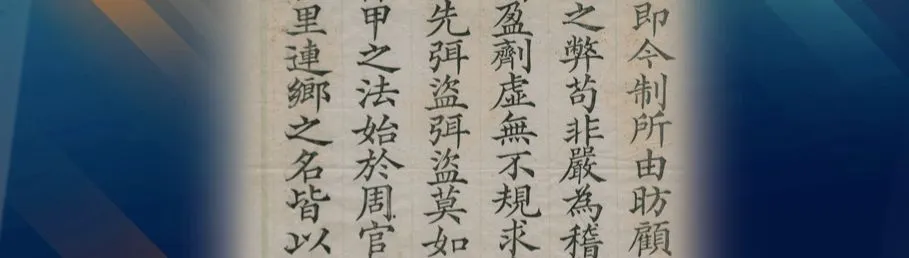 即令制所由昉顧
之弊苟非嚴為稽
盈劑虛無不規求
先弭盜弭盜莫如
甲之法始於周官
里連鄉之名皆以